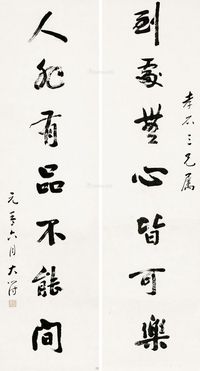 孝石三兄屬
到處無心皆可樂
人非有品不能閒
元年六月大